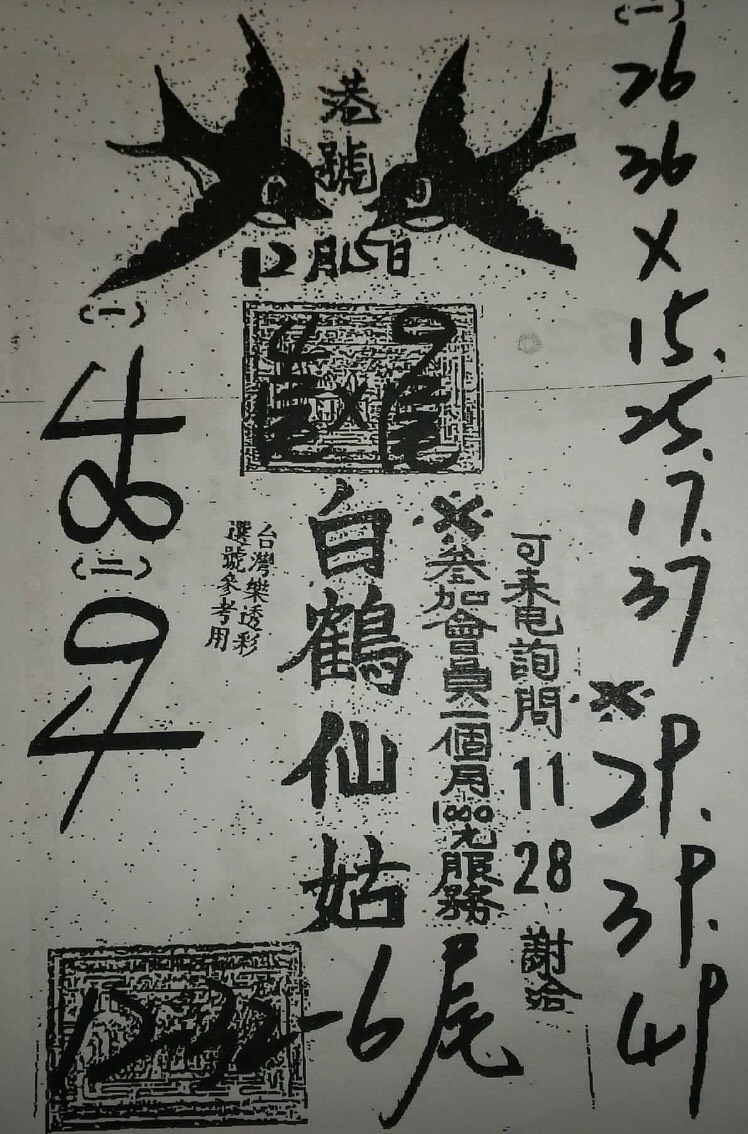 港號
12月15日
(一)
26
36
X
15.
25.
17.
37
※
29.
39.
49
(一)
4
8
(二)
9
4
X
白鶴仙姑
台灣樂透彩
選號參考用
※參加會員一個月1000元服務
可來电詢問 11 28 謝洽
12-32-6尾